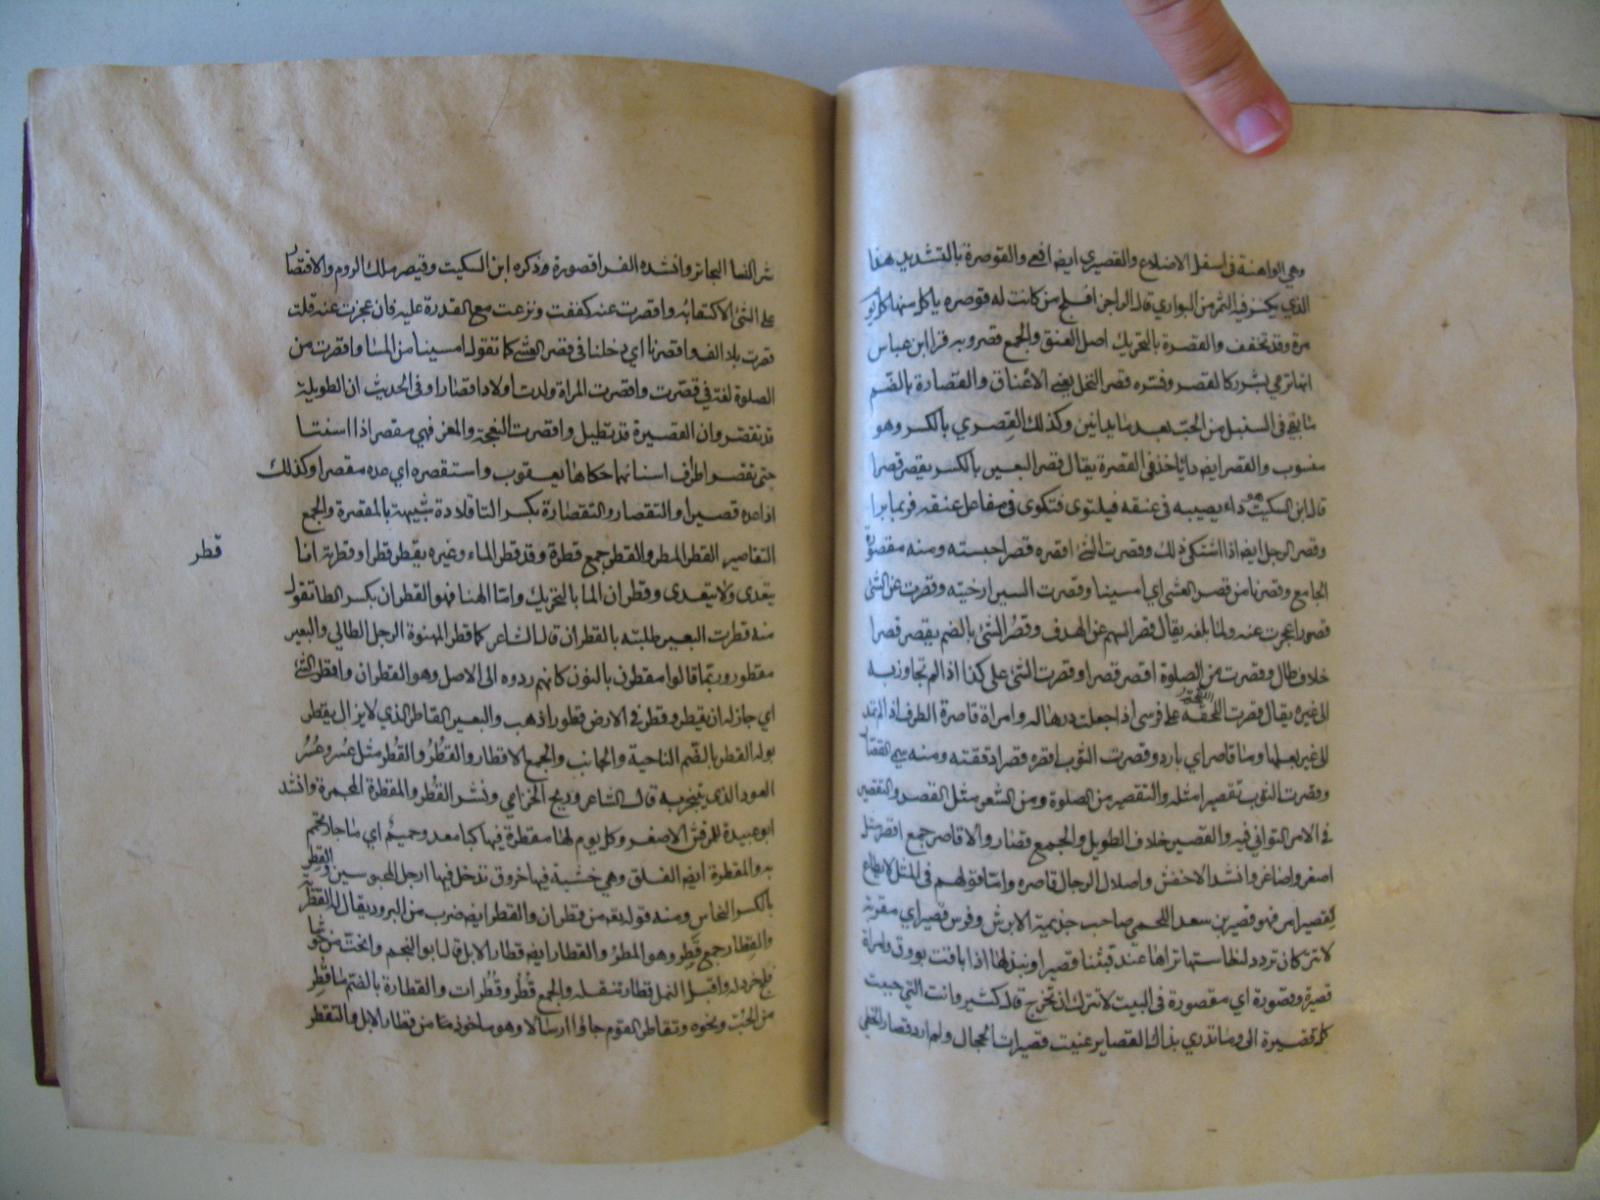 وهي الواهنة في اسفل الاضلاع والقصيري ايضا افعى والقوصرة بالتشديد هذا
الذي يكنز فيه التمر من البواري قال الراجز افلح من كانت له قوصره ياكل منها كل يوم
مرة وقد تخفف والقصرة بالتحريك اصل العنق والجمع قصر وبه قرا ابن عباس
انها ترمي بشرر كالقصر وفسره قصر النخل يعني الاعناق والقصارة بالضم
ما بقي في السنبل من الحب بعد ما يداس وكذلك القصري بالكسر وهو
منسوب والقصر ايضا داء ياخذ في القصرة يقال قصر البعير بالكسر يقصر قصرا
قال ابن السكيت هو داء يصيبه في عنقه فيلتوي فتكوى في مفاصل عنقه فربما برا
وقصر الرجل ايضا اذا اشتكى ذلك وقصرت الشئ اقصره قصرا حبسته ومنه مقصورة
الجامع وقصرنا من قصر العشي اي امسينا وقصرت الستر ارخيته وقصرت عن الشئ
قصورا عجزت عنه ولم ابلغه يقال قصر السهم عن الهدف وقصر الشئ بالضم يقصر قصرا
خلاف طال وقصرت من الصلوة اقصر قصرا وقصرت الشئ على كذا اذا لم تجاوز به
الى غيره يقال قصرت اللقحة على فرسي اذا جعلت درها له وامراة قاصرة الطرف اذا لم تمد
الى غير بعلها وماء قاصر اي بارد وقصرت الثوب اقصره قصرا دققته ومنه سمي القصار
وقصرت الثوب تقصيرا مثله والتقصير من الصلوة ومن الشعر مثل القصر والتقصير
في الامر التواني فيه والقصير خلاف الطويل والجمع قصار والاقاصر جمع اقصر مثل
اصغر واصاغر وانشد الاخفش واصلال الرجال اقاصره واما قولهم في المثل لا يطاع
لقصير امر فهو قصير بن سعد اللخمي صاحب جذيمة الابرش وفرس قصير اي مقربة
لا تترك ان ترود لنفاستها تراها عند قبتنا قصيرا ونبذلها اذا باقت بووق وامراة
قصيرة وقصورة اي مقصورة في البيت لا تترك ان تخرج قال كثير وانت التي حببت
كل قصيرة الي وما تدري بذاك القصاير عنيت قصيرات الحجال ولم ارد قصار الخطى
شر النسا البحاتر وانشده الفرا قصورة وذكره ابن السكيت وقيصر ملك الروم والاقتصار
على الشئ الاكتفا به واقصرت عنه كففت ونزعت مع القدرة عليه فان عجزت عنه قلت
قصرت بلا الف واقصرنا اي دخلنا في قصر العشي كما تقول امسينا من المسا واقصرت من
الصلوة لغة في قصرت واقصرت المراة ولدت اولادا قصارا وفي الحديث ان الطويلة
قد تقصر وان القصيرة قد تطيل واقصرت النعجة والمعز فهي مقصر اذا اسنتا
حتى يقصر اطراف اسنانهما حكاها يعقوب واستقصره اي عده مقصرا وكذلك
اذا عده قصيرا والتقصار والتقصارة بكسر التا قلادة شبيهة بالمقصرة والجمع
التقاصير القطر المطر والقطر جمع قطرة وقد قطر الماء وغيره يقطر قطرا وقطرته انا
قطر
يتعدى ولا يتعدى وقطران الما بالتحريك واما الهنا فهو القطران بكسر الطا تقول
منه قطرت البعير طليته بالقطران قال الشاعر كما قطر المهنوة الرجل الطالي والبعير
مقطور وربما قالوا مقطرن بالنون كانهم ردوه الى الاصل وهو القطران واقطر الشئ
اي حان له ان يقطر وقطر في الارض قطورا ذهب والبعير القاطر الذي لا يزال يقطر
بوله القطر بالضم الناحية والجانب والجمع الاقطار والقطر والقطر مثل عسر وعسر
العود الذي يتبخر به قال الشاعر وريح الخزامي ونشر القطر والمقطرة المجمرة وانشد
ابو عبيدة للمرقش الاصغر وكل يوم لها مقطرة فيها كبا معد وحميم اي ما حار تحم
به والمقطرة ايضا الفلق وهي خشبة فيها خروق تدخل فيها ارجل المحبوسين والقطر
بالكسر النحاس ومنه قوله تعالى من قطران والقطر ايضا ضرب من البرود يقال لها القطرية
والقطار جمع قطر وهو المطر والقطار ايضا قطار الابل قال ابو النجم وانحت من حرشا
فلج خردله واقبل النمل قطارا تنقله والجمع قطر وقطرات والقطارة بالضم ما قطر
من الحب ونحوه وتقاطر القوم جاوا ارسالا وهو ماخوذ من قطار الابل والتقطر